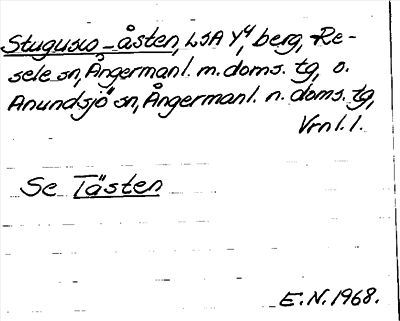 Stugusjö-åsten, LSA Y4, berg, Re-
sele sn, Ångermanl. m. doms. tg, o.
Anundsjö sn, Ångermanl. n. doms. tg,
Vrnl. l.
Se Tåsten
E.N. 1968.